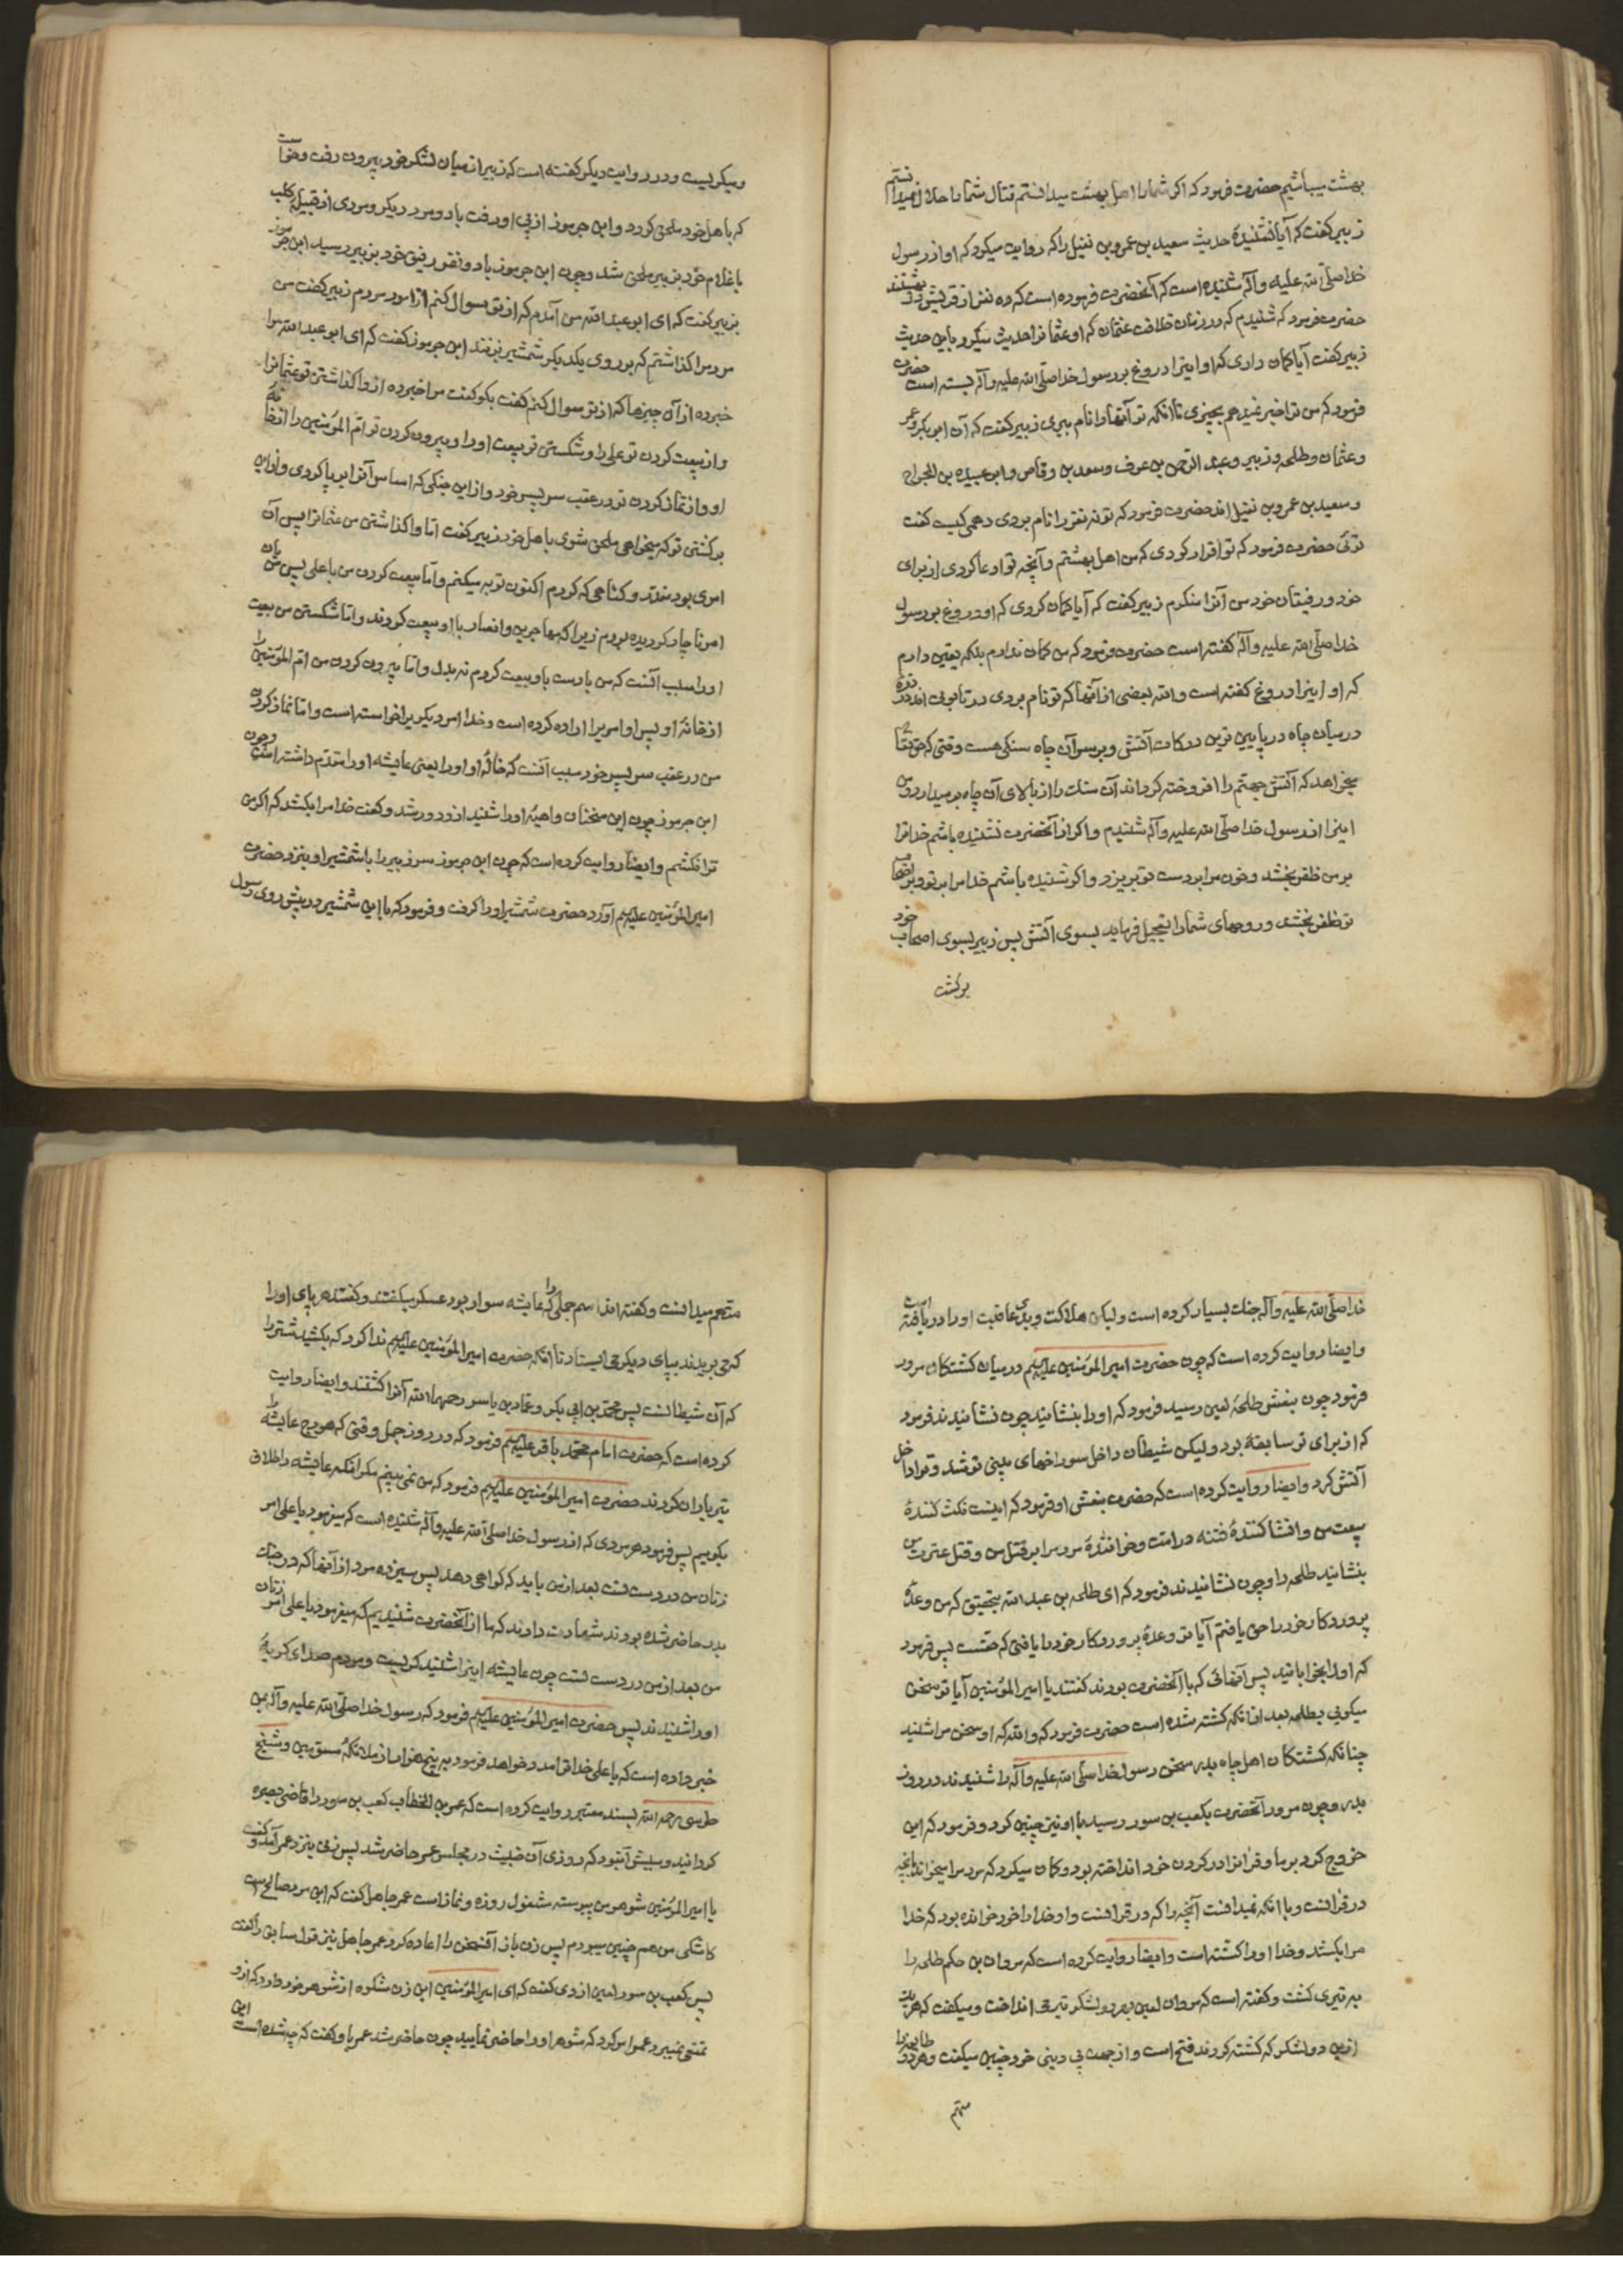 بهشت میباشیم حضرت فرمود که اکر شما را اهل بهشت میدانستم قتال شما را حلال نمیدانستم
زبیر کفت که آیا نشنیدهٔ حدیث سعید بن عمرو بن نفیل را که روایت میکرد که او از رسول
خدا صلّی الله علیه وآله شنیده است که آنحضرت فرموده است که ده نفر از قریش در بهشتند
حضرت فرمود که شنیدم که در زمان خلافت عثمان که او عثمانرا حدیث میکرد باین حدیث
زبیر کفت آیا کمان داری که او اینرا دروغ بر رسول خدا صلّی الله علیه وآله بسته است حضرت
فرمود که من ترا خبر نمیدهم بچیزی تا آنکه تو آنها را نام ببری زبیر کفت که آن ابو بکر و عمر
و عثمان و طلحه و زبیر و عبد الرّحمن بن عوف و سعد بن وقاص و ابو عبیده بن الجراح
و سعید بن عمرو بن نفیل اند حضرت فرمود که تو نه نفر را نام بردی دهمی کیست کفت
توئی حضرت فرمود که تو اقرار کردی که من اهل بهشتم و آنچه تو ادعا کردی از برای
خود و رفیقان خود من آنرا منکرم زبیر کفت که آیا کمان کردی که او دروغ بر رسول
خدا صلّی الله علیه وآله کفته است حضرت فرمود که من کمان ندارم بلکه یقین دارم
که او اینرا دروغ کفته است والله بعضی از آنها که تو نام بردی در تابوتی اند در درهٔ
در میان چاه در پایین ترین درکات آتش و بر سر آن چاه سنکی هست وقتی که حق تعالی
میخواهد که آتش جهنّم را افروخته کرداند آن سنک را از بالای آن چاه بر میدارد و من
اینرا از رسول خدا صلّی الله علیه وآله شنیدم و اکر از آنحضرت نشنیده باشم خدا ترا
بر من ظفر بخشد و خون مرا بر دست تو بریزد و اکر شنیده باشم خدا مرا بر تو و بر اصحاب
تو ظفر بخشد و روحهای شما را تعجیل فرماید بسوی آتش پس زبیر بسوی اصحاب خود
برکشت
و میکریست و در روایت دیکر کفته است که زبیر از میان لشکر خود بیرون رفت و خواست
که باهل خود ملحق کردد و ابن جرموز از پی او رفت با دو مرد دیکر و مردی از قبیلهٔ کلب
با غلام خود بزبیر ملحق شد و چون ابن جرموز با دو نفر رفیق خود بزبیر رسید ابن جرموز
بزبیر کفت که ای ابو عبد الله من آمدم که از تو سوال کنم از امور مردم زبیر کفت من
مردم را کذاشتم که بر روی یکدیکر شمشیر بزنند ابن جرموز کفت که ای ابو عبد الله مرا
خبر ده از آن چیزها که از تو سوال کنم کفت بکو کفت مرا خبر ده از واکذاشتن تو عثمانرا
و از بیعت کردن تو علی را و شکستن تو بیعت او را و بیرون کردن تو امّ المؤمنین را از خانهٔ
او و از نماز کردن تو در عقب سر پسر خود و از این جنکی که اساس آنرا بر پا کردی و از این
برکشتن تو که میخواهی ملحق شوی باهل خود زبیر کفت امّا واکذاشتن من عثمانرا پس آن
امری بود شد و کناهی که کردم اکنون توبه میکنم و امّا بیعت کردن من با علی پس من بآن
امر ناچار کردیده بودم زیرا که مهاجرین و انصار با او بیعت کردند و امّا شکستن من بیعت
او را سبب آنست که من با دست باو بیعت کردم نه بدل و امّا بیرون کردن من امّ المؤمنین را
از خانهٔ او پس او امریرا اراده کرده است و خدا امر دیکریرا خواسته است و امّا نماز کردن
من در عقب سر پسر خود سبب آنست که خالهٔ او او را یعنی عایشه او را مقدّم داشته است و چون
ابن جرموز چون این سخنان واهیهٔ او را شنید از و دور شد و کفت خدا مرا بکشد که اکر من
ترا نکشم و ایضا روایت کرده است که چون ابن جرموز سر زبیر را با شمشیر او بنزد حضرت
امیر المؤمنین علیهم آورد حضرت شمشیر او را کرفت و فرمود که با این شمشیر در پیش روی رسول
خدا صلّی الله علیه وآله جنک بسیار کرده است ولیکن هلاکت و بدی عاقبت او را دریافته است
و ایضا روایت کرده است که چون حضرت امیر المؤمنین علیهم در میان کشتکان مرور
فرمود چون بنعش طلحهٔ لعین رسید فرمود که او را بنشانید چون نشانیدند فرمود
که از برای تو سابقهٔ بود ولیکن شیطان داخل سوراخهای بینی تو شد و ترا داخل
آتش کرد و ایضا روایت کرده است که حضرت بنعش او فرمود که اینست نکث کنندهٔ
بیعت من و انشا کنندهٔ فتنه در امت و خوانندهٔ مردم را بر قتل من و قتل عترت من
بنشانید طلحه را و چون نشانیدند فرمود که ای طلحه بن عبد الله بتحقیق که من وعدهٔ
پروردکار خود را حق یافتم آیا تو وعدهٔ پروردکار خود را یافتی که حقست پس فرمود
که او را بخوابانید پس آنهائی که با آنحضرت بودند کفتند یا امیر المؤمنین آیا تو سخن
میکوئی بطلحه بعد از آنکه کشته شده است حضرت فرمود که والله که او سخن مرا شنید
چنانکه کشتکان اهل چاه بدر سخن رسول خدا صلّی الله علیه وآله را شنیدند در روز
بدر و چون مرور آنحضرت بکعب بن سور رسید با او نیز چنین کرد و فرمود که این
خروج کرد بر ما و قرآنرا در کردن خود انداخته بود و کمان میکرد که مردم را میخواند بآنچه
در قرآنست و با آنکه نمیدانست آنچه را که در قرآنست و او خدا را خود خوانده بود که خدا
مرا بکشد و خدا او را کشته است و ایضا روایت کرده است که مروان بن حکم طلحه را
به تیری کشت و کفته است که مروان لعین بهر دو لشکر تیر می انداخت و میکفت که هر یک
از این دو لشکر که کشته کردند فتح است و از جهت بی دینی خود چنین میکفت و هر دو طایفه را
متهم
متهم میدانست و کفته اند اسم جملی را که عایشه سوار بود عسکر میکفتند و کفتند هر پای او را
که می بریدند بپای دیکر می ایستاد تا آنکه حضرت امیر المؤمنین علیهم ندا کرد که بکشید شتر را
که آن شیطانست پس محمّد بن ابی بکر و عمّار بن یاسر رحمهما الله آنرا کشتند و ایضا روایت
کرده است که حضرت امام محمّد باقر علیهم فرمود که در روز جمل وقتی که هودج عایشه را
تیر باران کردند حضرت امیر المؤمنین علیهم فرمود که من نمی بینم مکر آنکه عایشه را طلاق
بکوییم پس فرمود هر مردی که از رسول خدا صلّی الله علیه وآله شنیده است که میفرمود یا علی امر
زنان من در دست تست بعد از من باید که کواهی دهد پس سیزده مرد از آنها که در جنک
بدر حاضر شده بودند شهادت دادند که ما از آنحضرت شنیدیم که میفرمود یا علی امر زنان
من بعد از من در دست تست چون عایشه اینرا شنید کریست و مردم صدای کریهٔ
او را شنیدند پس حضرت امیر المؤمنین علیهم فرمود که رسول خدا صلّی الله علیه وآله بمن
خبر داده است که یا علی خدا ترا مدد خواهد فرمود به پنج هزار از ملائکهٔ مسوّمین و شیخ
طوسی رحمه الله بسند معتبر روایت کرده است که عمر بن الخطاب کعب بن سور را قاضی بصره
کردانید و سببش آنبود که روزی آن خبیث در مجلس عمر حاضر شد پس زنی بنزد عمر آمد و کفت
یا امیر المؤمنین شوهر من پیوسته مشغول روزه و نماز است عمر جاهل کفت که این مرد صالح است
کاشکی من هم چنین میبودم پس زن باز آنسخن را اعاده کرد عمر جاهل نیز قول سابق را کفت
پس کعب بن سور لعین از وی کفت که ای امیر المؤمنین این زن شکوه از شوهر خود دارد که از و
تمتّی نمیبرد عمر امر کرد که شوهر او را حاضر نمایید چون حاضر شد عمر باو کفت که چه شده است این